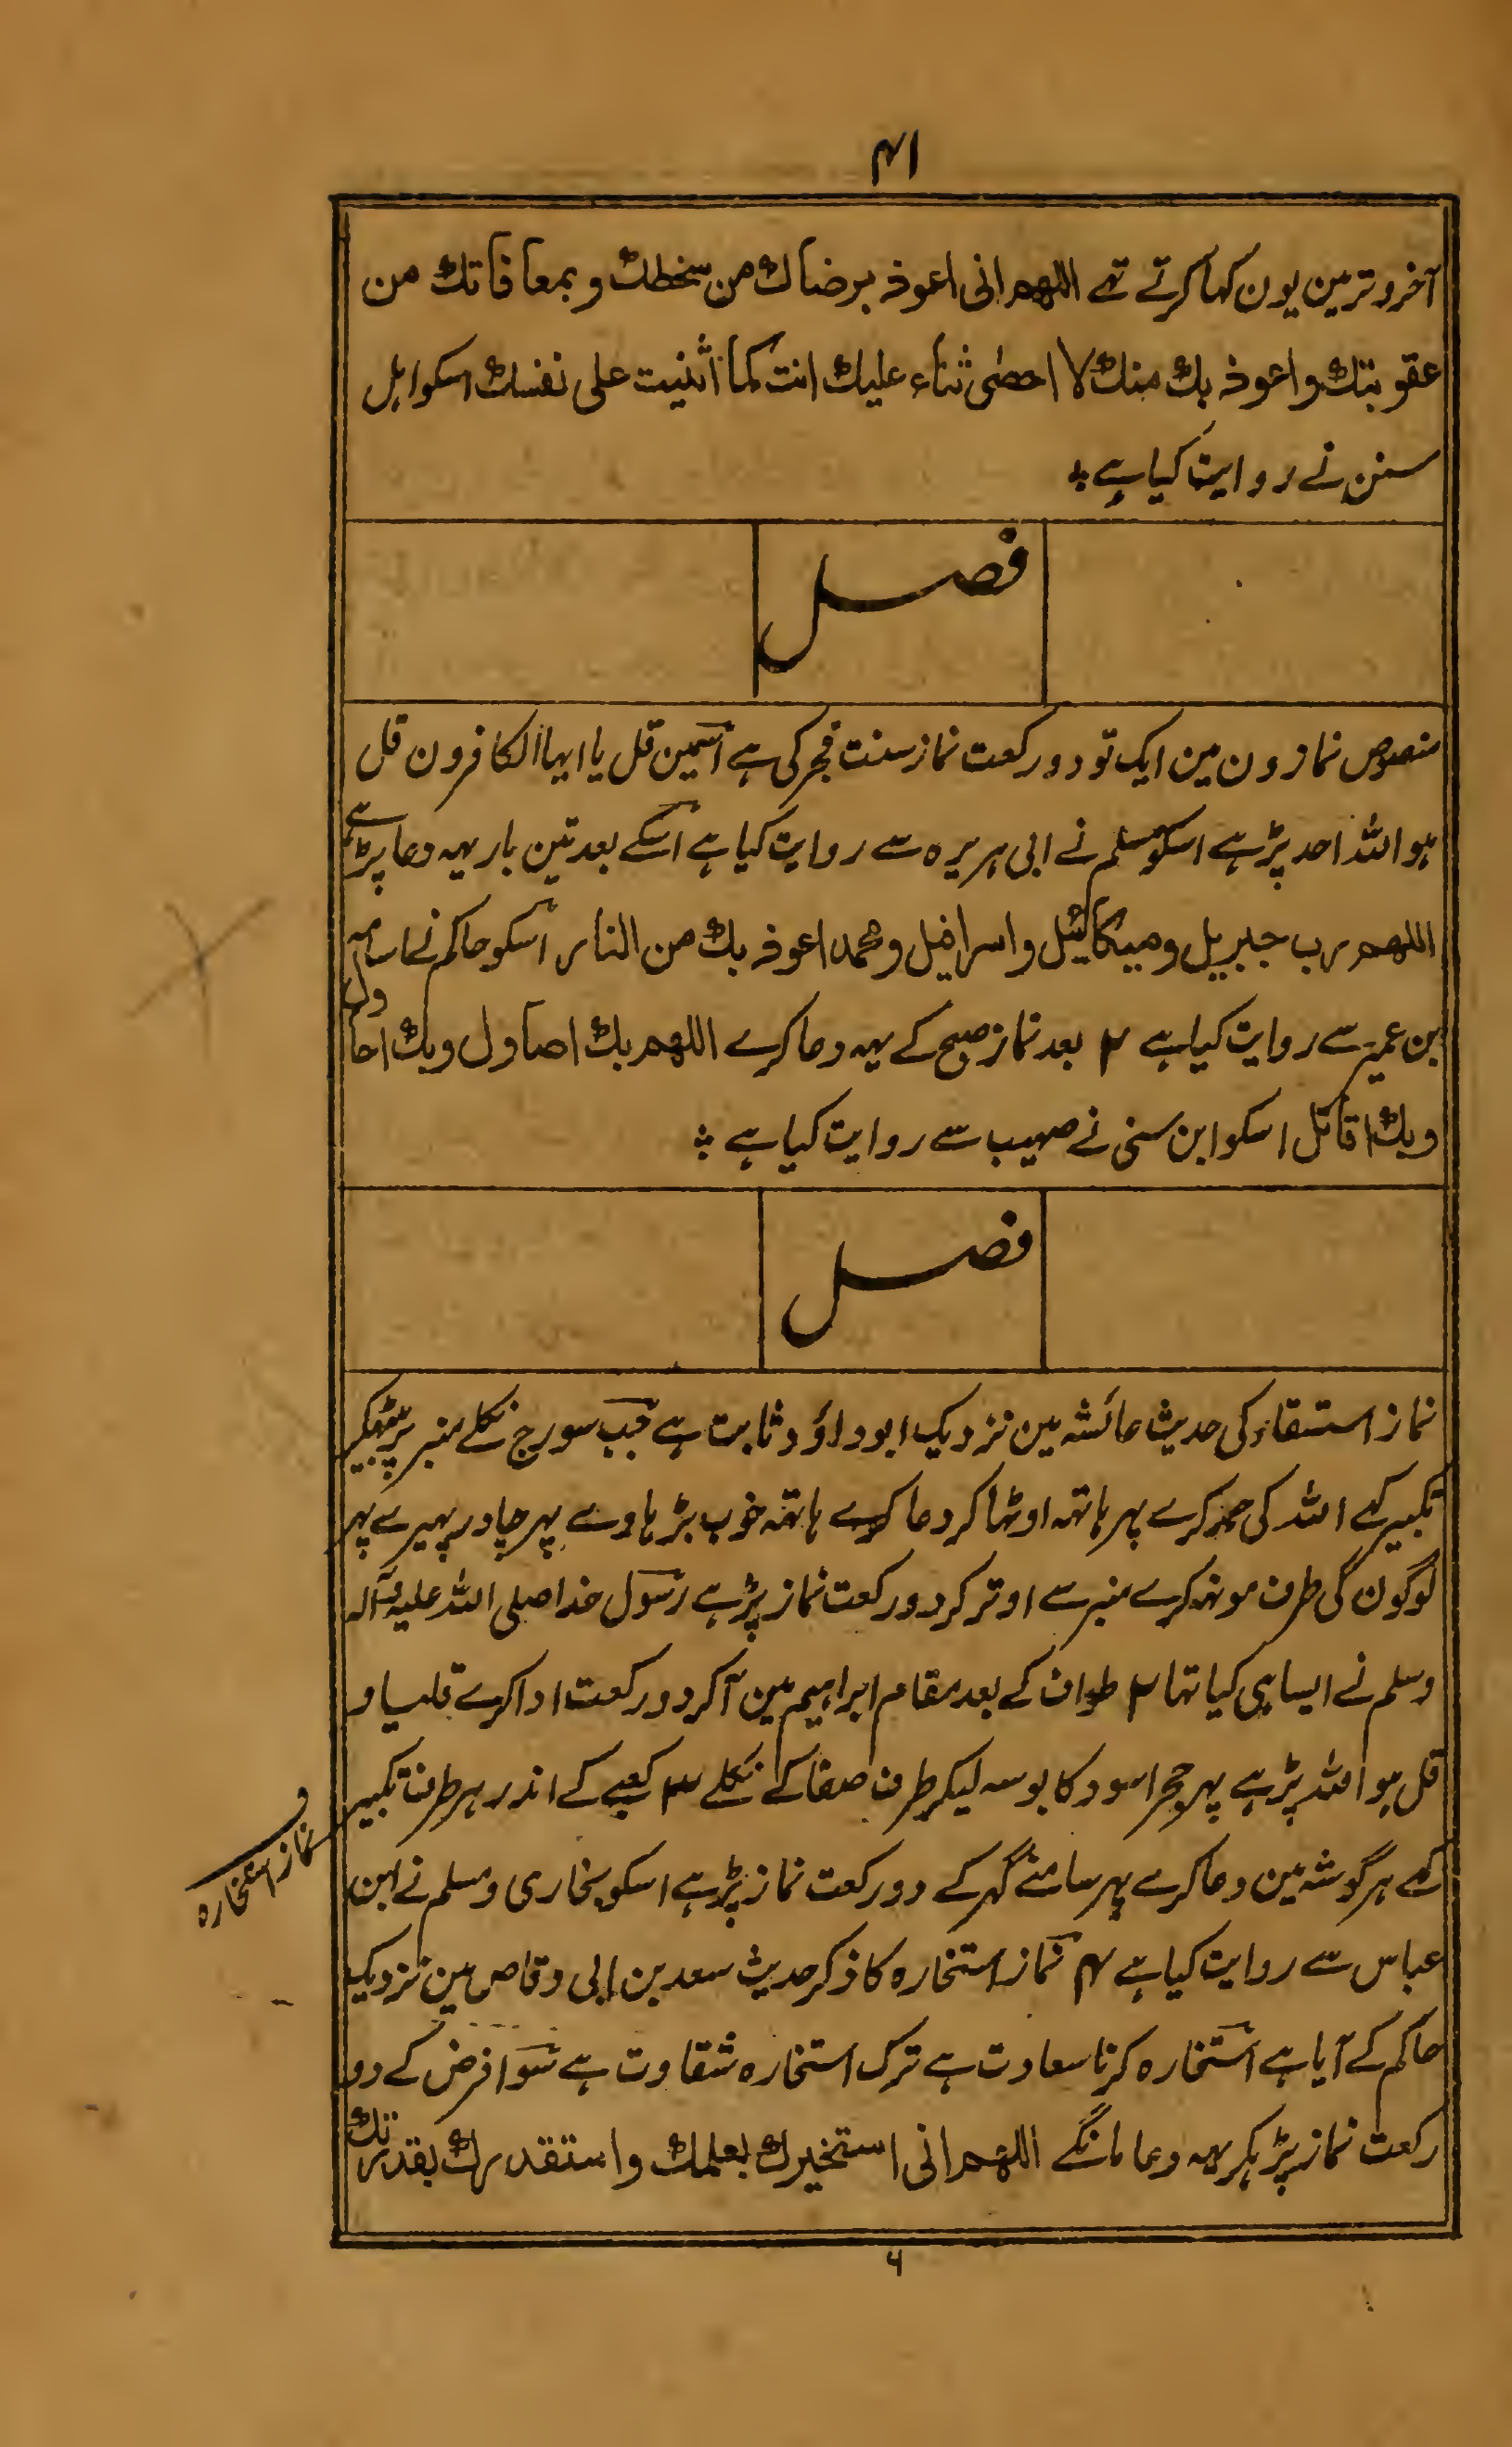 ۴۱
آخر وتر مین یون کہا کرتے تہے اللهم انی اعوذ برضاك من سخطك و بمعافاتك من
عقوبتك واعوذ بك منك لا احصی ثناء علیك انت کما اثنیت علی نفسك اسکو اہل
سنن نے روایت کیا ہے
فصل
منصوص نمازون مین ایک تو دو رکعت نماز سنت فجر کی ہے اسمین قل یا ایہا الکافرون قل
ہو اللہ احد پڑہے اسکو مسلم نے ابی ہریرہ سے روایت کیا ہے اسکے بعد تین بار یہہ دعا پڑہے
اللهم رب جبریل ومیکائیل واسرافیل ومحمد اعوذ بك من النار اسکو حاکم نے اسامہ
بن عمیر سے روایت کیا ہے ۲ بعد نماز صبح کے یہہ دعا کرے اللهم بك اصاول وبك احاول
وبك اقاتل اسکو ابن سنی نے صہیب سے روایت کیا ہے
فصل
نماز استسقاء کی حدیث عائشہ مین نزدیک ابوداؤد ثابت ہے جب سورج نکلے منبر پر بیٹھکر
تکبیر کہے اللہ کی حمد کرے پہر ہاتہہ اوٹہا کر دعا کرے ہاتہہ خوب بڑہاوے پہر چادر پہیرے پہر
لوگون کی طرف مونہہ کرے منبر سے اوتر کر دو رکعت نماز پڑہے رسول خدا صلی اللہ علیہ وآلہ
وسلم نے ایسا ہی کیا تہا ۲ طواف کے بعد مقام ابراہیم مین آکر دو رکعت ادا کرے قلیا و
قل ہو اللہ پڑہے پہر حجر اسود کا بوسہ لیکر طرف صفا کے نکلے ۳ کعبے کے اندر ہر طرف تکبیر
کہے ہر گوشہ مین دعا کرے پہر سامنے گہر کے دو رکعت نماز پڑہے اسکو بخاری و مسلم نے ابن
عباس سے روایت کیا ہے ۴ نماز استخارہ کا ذکر حدیث سعد بن ابی وقاص مین نزدیک
حاکم کے آیا ہے استخارہ کرنا سعادت ہے ترک استخارہ شقاوت ہے سوا فرض کے دو
رکعت نماز پڑہکر یہہ دعا مانگے اللهم انی استخیرك بعلمك واستقدرك بقدرتك
ف
نماز استخارہ
۶